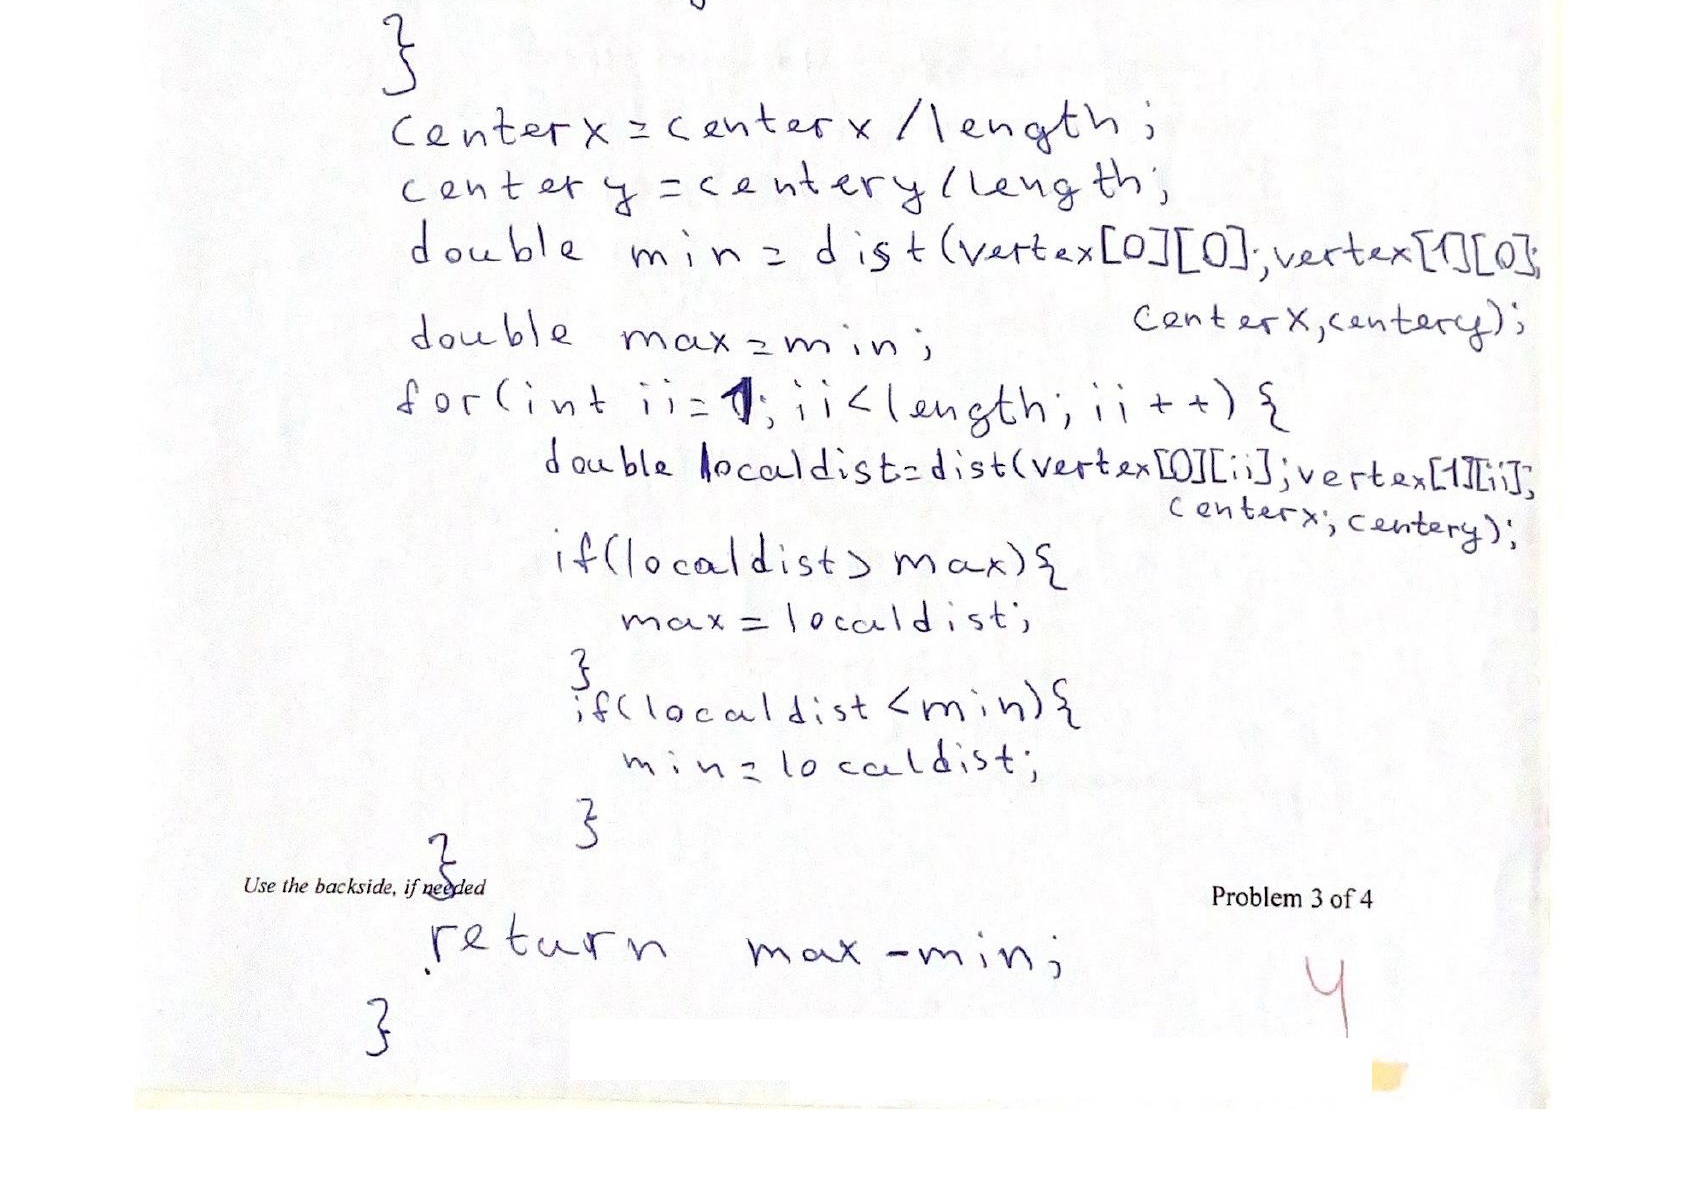 }
centerx=centerx/length;
centery=centery/length;
double min=dist(vertex[0][0];vertex[1][0];
centerx,centery);
double max=min;
for(int ii=1;ii<length;ii++){
double localdist=dist(vertex[0][ii];vertex[1][ii];
centerx;centery);
if(localdist>max){
max=localdist;
}
if(localdist<min){
min=localdist;
}
}
Use the backside, if needed
Problem 3 of 4
return max-min;
4
}